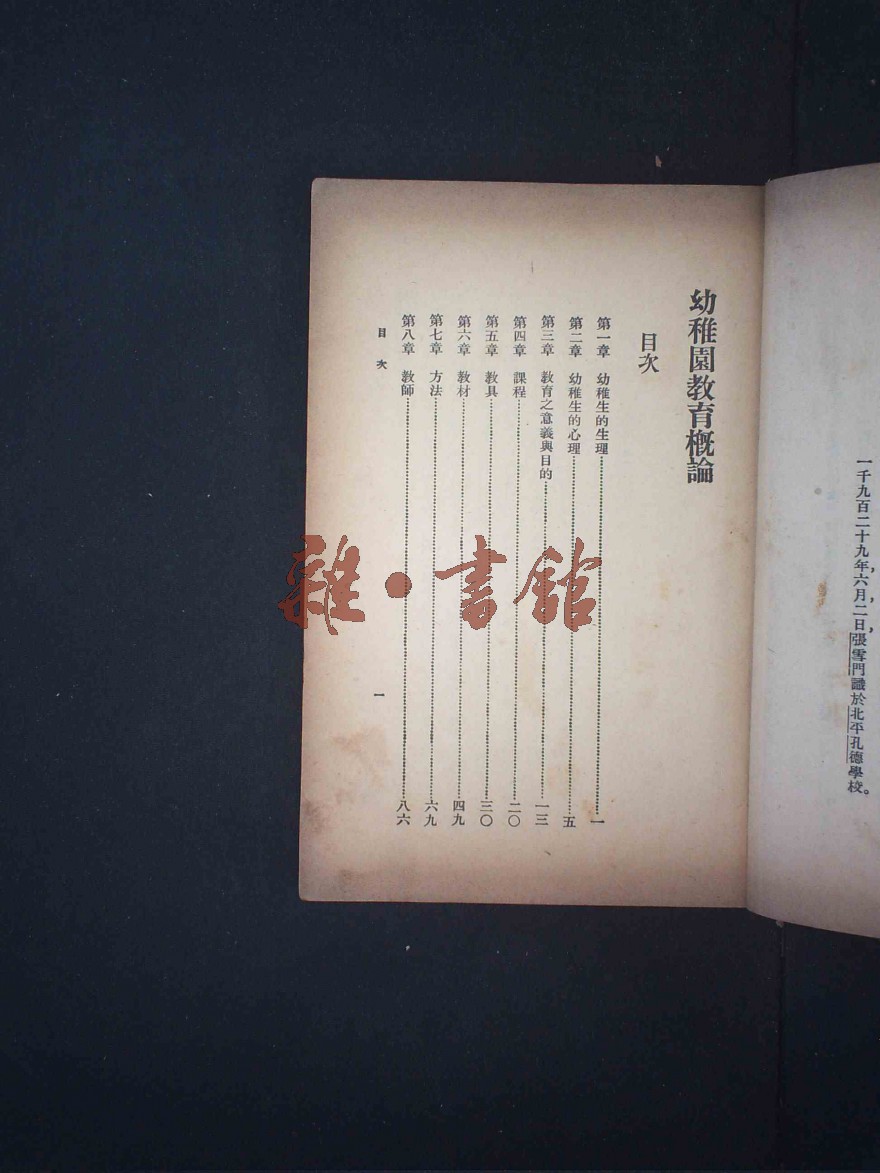 一千九百二十九年，六月，二日，張雪門識於北平孔德學校。
幼稚園教育概論
目次
第一章 幼稚生的生理……一
第二章 幼稚生的心理……五
第三章 教育之意義與目的……一三
第四章 課程……二〇
第五章 教具……三〇
第六章 教材……四九
第七章 方法……六九
第八章 教師……八六
目次
一
雜·書館